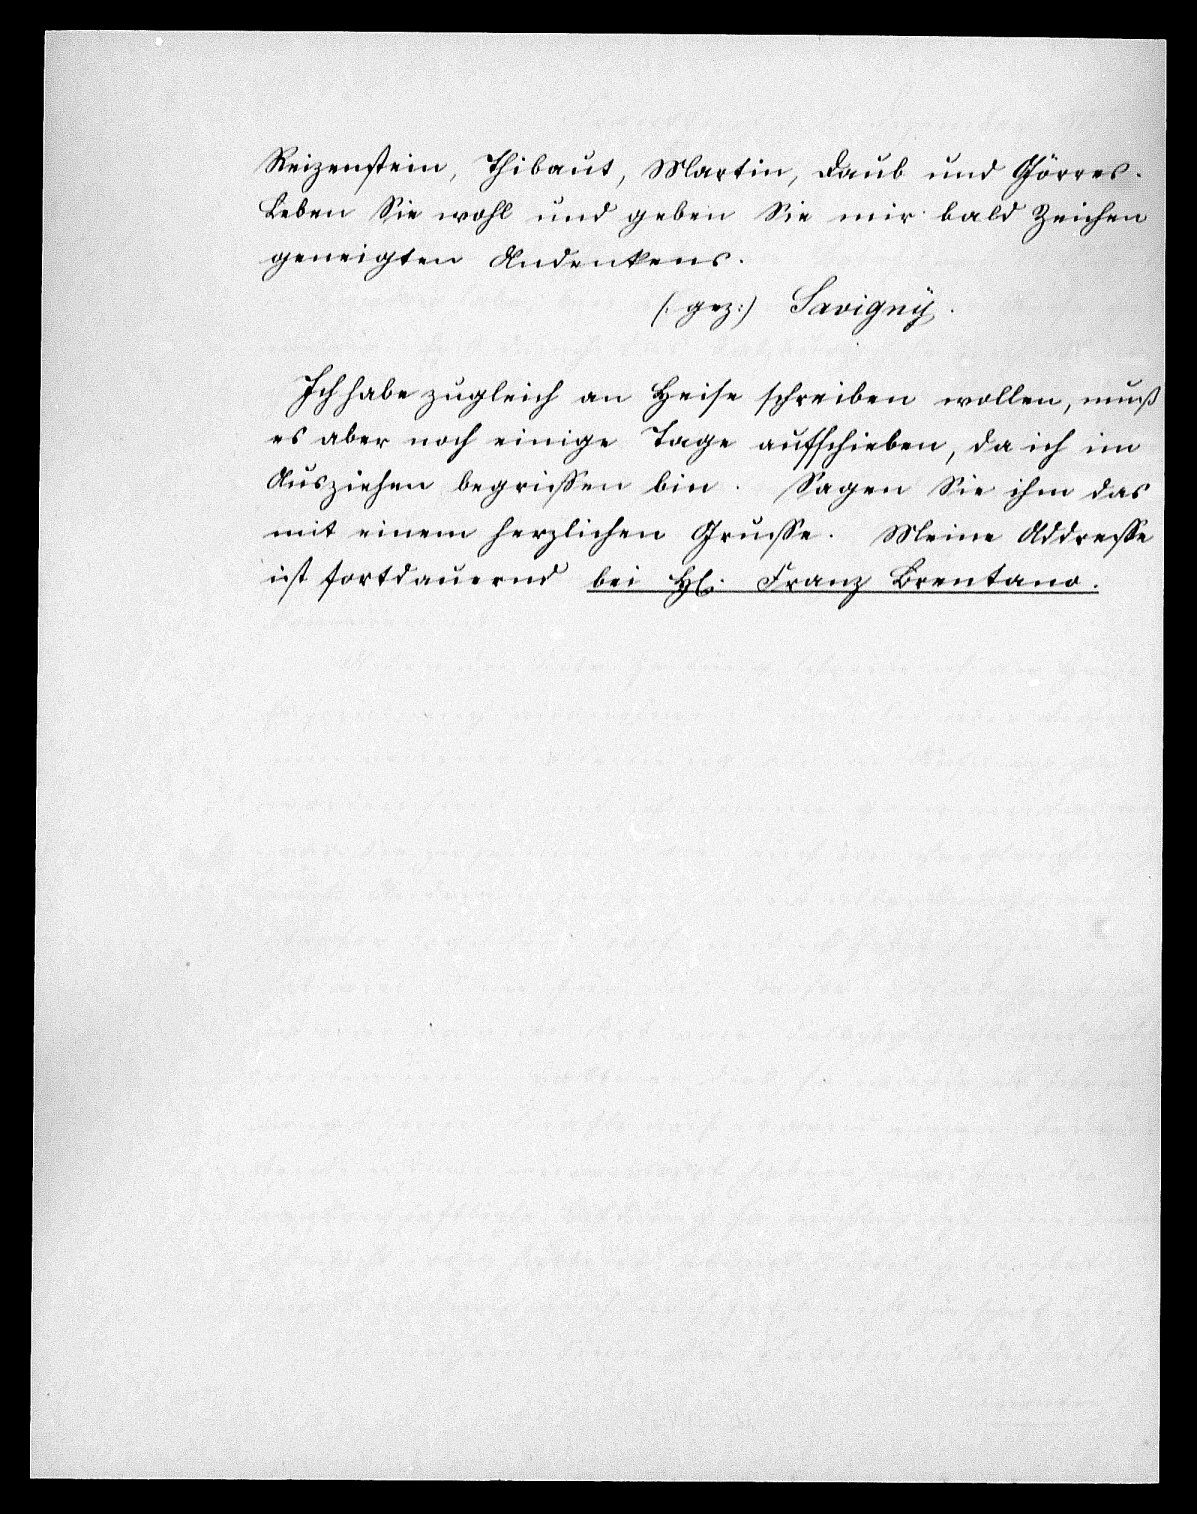 Reizenstein, Thibaut, Martin, Daub und Görres.
Leben Sie wohl und geben Sie mir bald Zeichen
geneigten Andenkens.
(: gez:) Savigny.
Ich habe zugleich an Heise schreiben wollen, muß
es aber noch einige Tage aufschieben, da ich im
Ausziehen begriffen bin. Sagen Sie ihm das
mit einem herzlichen Grusse. Meine Addresse
ist fortdauernd bei H. Franz Brentano.